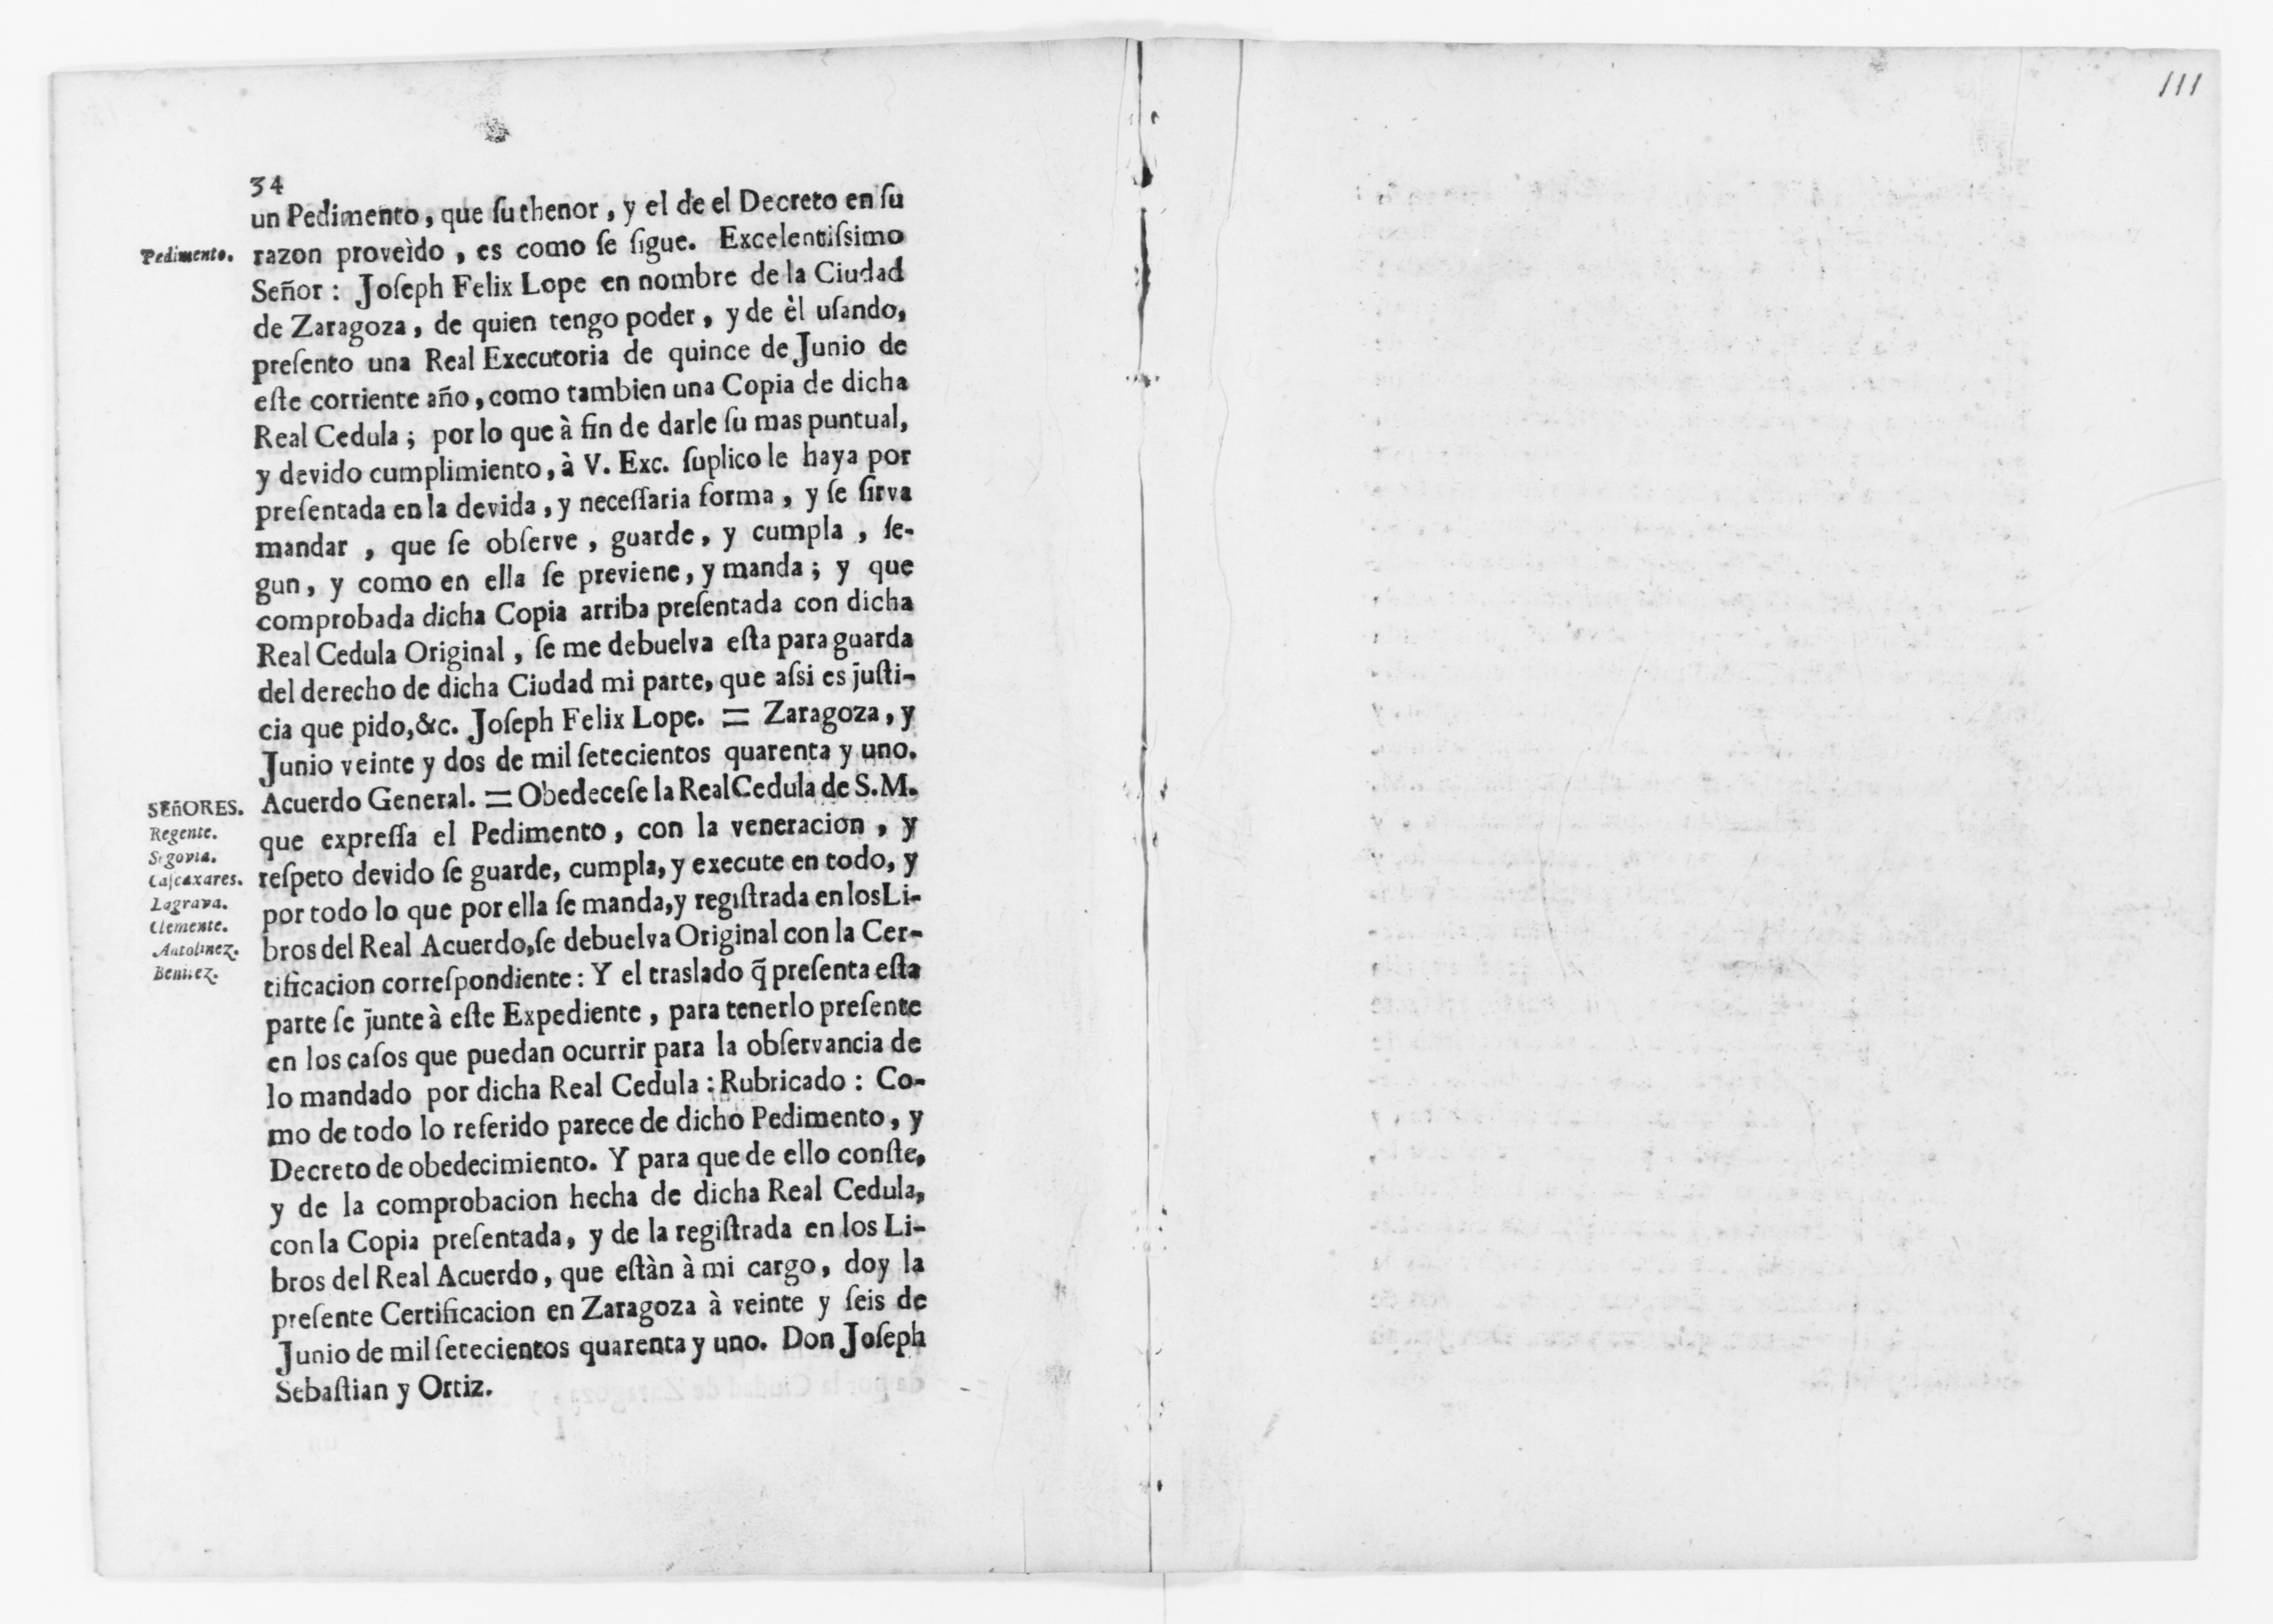 34
un Pedimento, que ſu thenor, y el de el Decreto en ſu
Pedimento.
razon proveìdo, es como ſe ſigue. Excelentiſsimo
Señor: Joſeph Felix Lope en nombre de la Ciudad
de Zaragoza, de quien tengo poder, y de èl uſando,
preſento una Real Executoria de quince de Junio de
eſte corriente año, como tambien una Copia de dicha
Real Cedula; por lo que à fin de darle ſu mas puntual,
y devido cumplimiento, à V. Exc. ſuplico le haya por
preſentada en la devida, y neceſſaria forma, y ſe ſirva
mandar, que ſe obſerve, guarde, y cumpla, ſe-
gun, y como en ella ſe previene, y manda; y que
comprobada dicha Copia arriba preſentada con dicha
Real Cedula Original, ſe me debuelva eſta para guarda
del derecho de dicha Ciudad mi parte, que aſsi es juſti-
cia que pido, &c. Joſeph Felix Lope. = Zaragoza, y
Junio veinte y dos de mil ſetecientos quarenta y uno.
Acuerdo General. = Obedeceſe la Real Cedula de S. M.
que expreſſa el Pedimento, con la veneracion, y
reſpeto devido ſe guarde, cumpla, y execute en todo, y
por todo lo que por ella ſe manda, y regiſtrada en los Li-
bros del Real Acuerdo, ſe debuelva Original con la Cer-
tificacion correſpondiente: Y el traslado q̃ preſenta eſta
parte ſe junte à eſte Expediente, para tenerlo preſente
en los caſos que puedan ocurrir para la obſervancia de
lo mandado por dicha Real Cedula: Rubricado: Co-
mo de todo lo referido parece de dicho Pedimento, y
Decreto de obedecimiento. Y para que de ello conſte,
y de la comprobacion hecha de dicha Real Cedula,
con la Copia preſentada, y de la regiſtrada en los Li-
bros del Real Acuerdo, que eſtàn à mi cargo, doy la
preſente Certificacion en Zaragoza à veinte y ſeis de
Junio de mil ſetecientos quarenta y uno. Don Joſeph
Sebaſtian y Ortiz.
SEñORES.
Regente.
Segovia.
Caſcaxares.
Lagrava.
Clemente.
Antolinez.
Benitez.
111